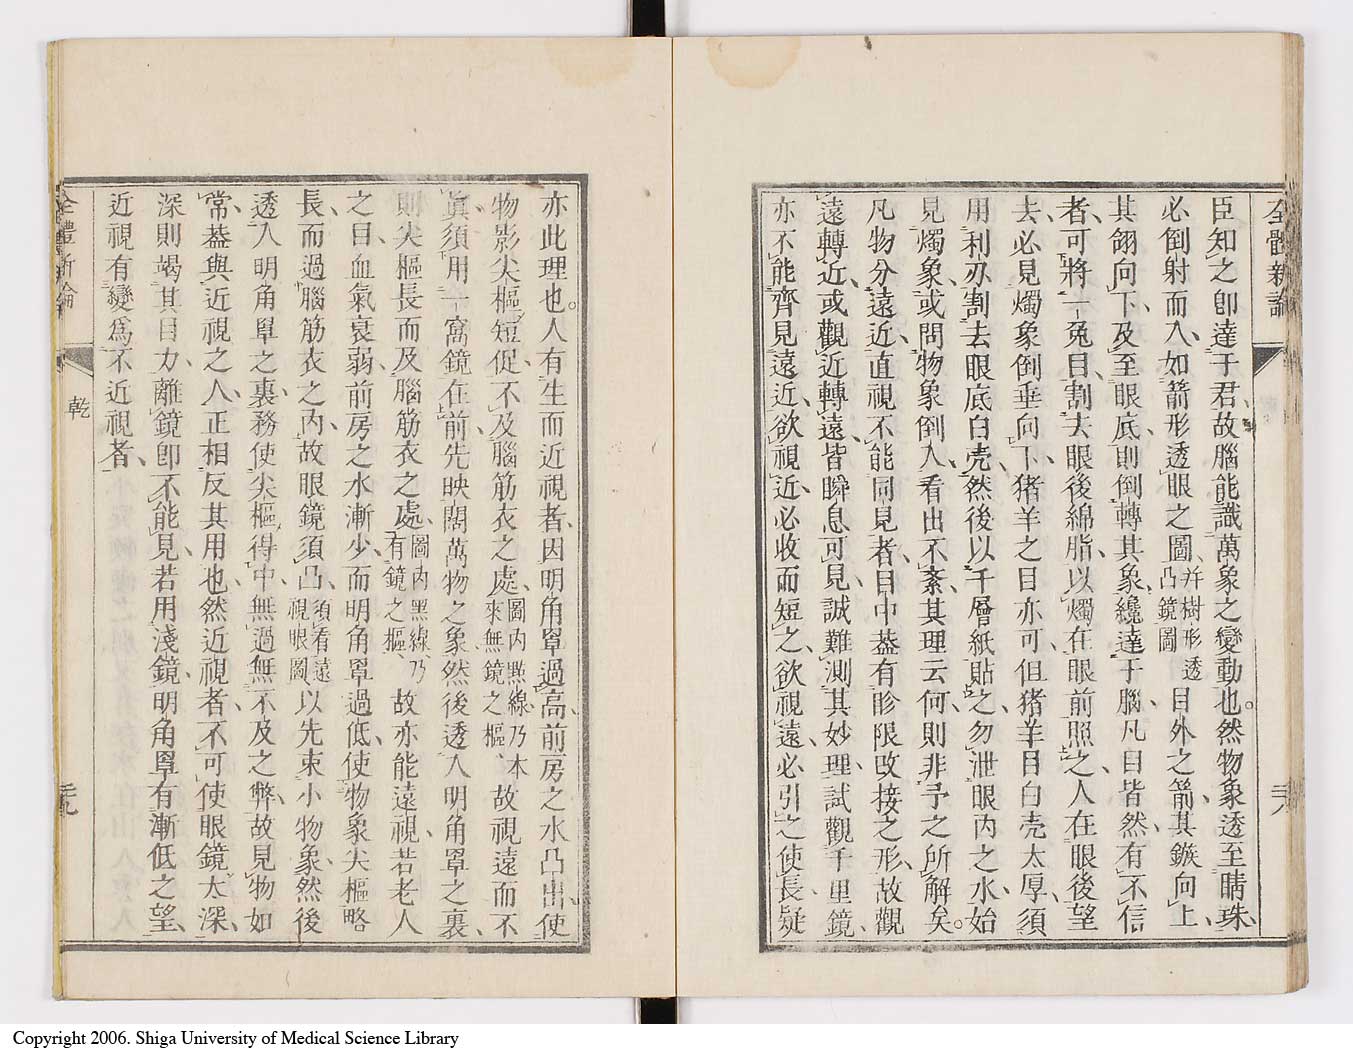 全體新論
三八
臣知之卽達于君故腦能識萬象之變動也。然物象透至睛珠、
必倒射而入、如箭形透眼之圖、幷樹形透凸鏡圖目外之箭其鏃向上、
其翎向下、及至眼底則倒轉其象纔達于腦、凡目皆然有不信
者、可將一兔目、割去眼後綿脂、以燭在眼前照之、人在眼後望
去、必見燭象倒垂向下猪羊之目亦可、但猪羊目白壳太厚、須
用利刃割去眼底白壳、然後以千層紙貼之、勿泄眼內之水、始
見燭象、或問物象倒入、看出不紊、其理云何、則非予之所解矣。
凡物分遠近、直視不能同見者、目中葢有畛限改接之形、故觀
遠轉近、或觀近轉遠、皆瞬息可見、誠難測其妙理、試觀千里鏡、
亦不能齊見遠近、欲視近必收而短之、欲視遠、必引之使長、疑
亦此理也。人有生而近視者、因明角罩過高、前房之水凸出、使
物影尖樞短促、不及腦筋衣之處、圖內點線、乃本來無鏡之樞、故視遠而不
眞、須用一窩鏡在前、先映闊萬物之象、然後透入明角罩之裏、
則尖樞長而及腦筋衣之處、圖內黑線乃有鏡之樞、故亦能遠視、若老人
之目、血氣衰弱、前房之水漸少、而明角罩過低、使物象尖樞略
長、而過腦筋衣之內、故眼鏡須凸、須看遠視眼圖以先束小物象、然後
透入明角罩之裏、務使尖樞得中、無過無不及之弊、故見物如
常、葢與近視之人、正相反其用也、然近視者、不可使眼鏡太深、
深則竭其目力、離鏡卽不能見、若用淺鏡、明角罩有漸低之望、
近視有變爲不近視者、
全體新論
乾
三九
Copyright 2006. Shiga University of Medical Science Library